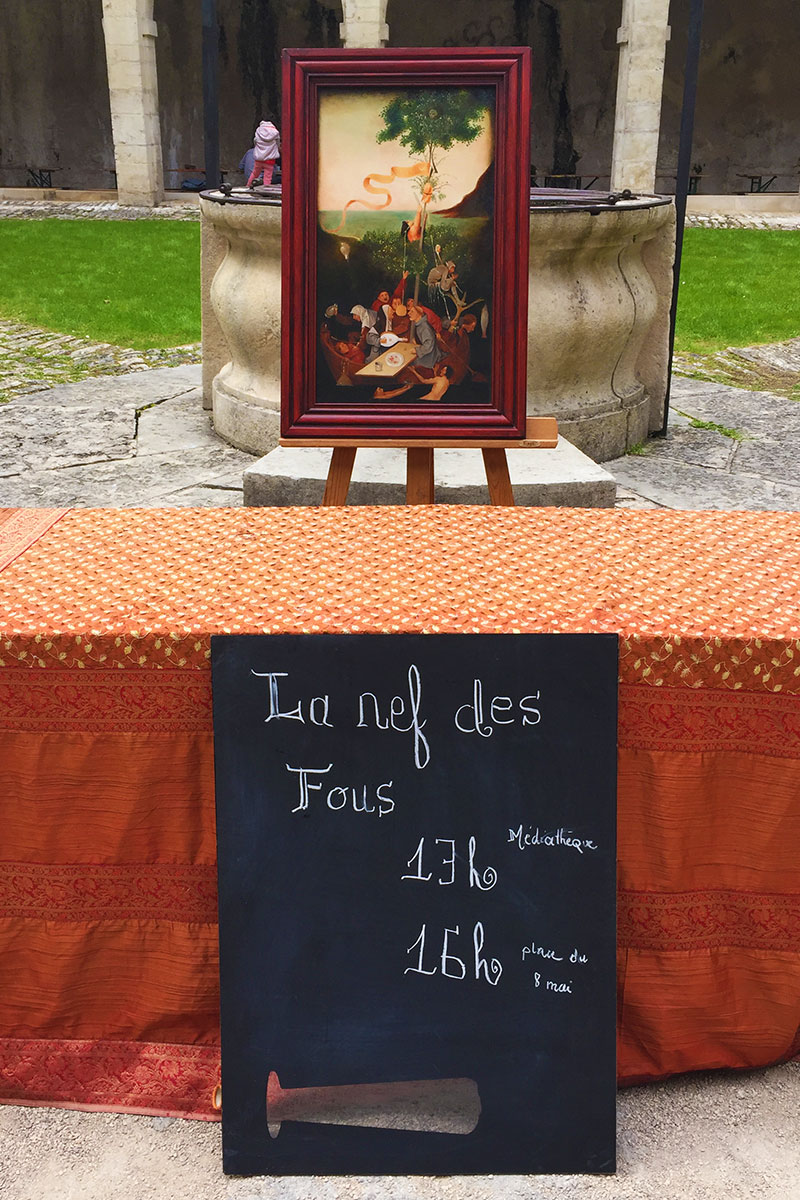 La nef des
Fous
13h Médiathèque
16h place du
8 mai